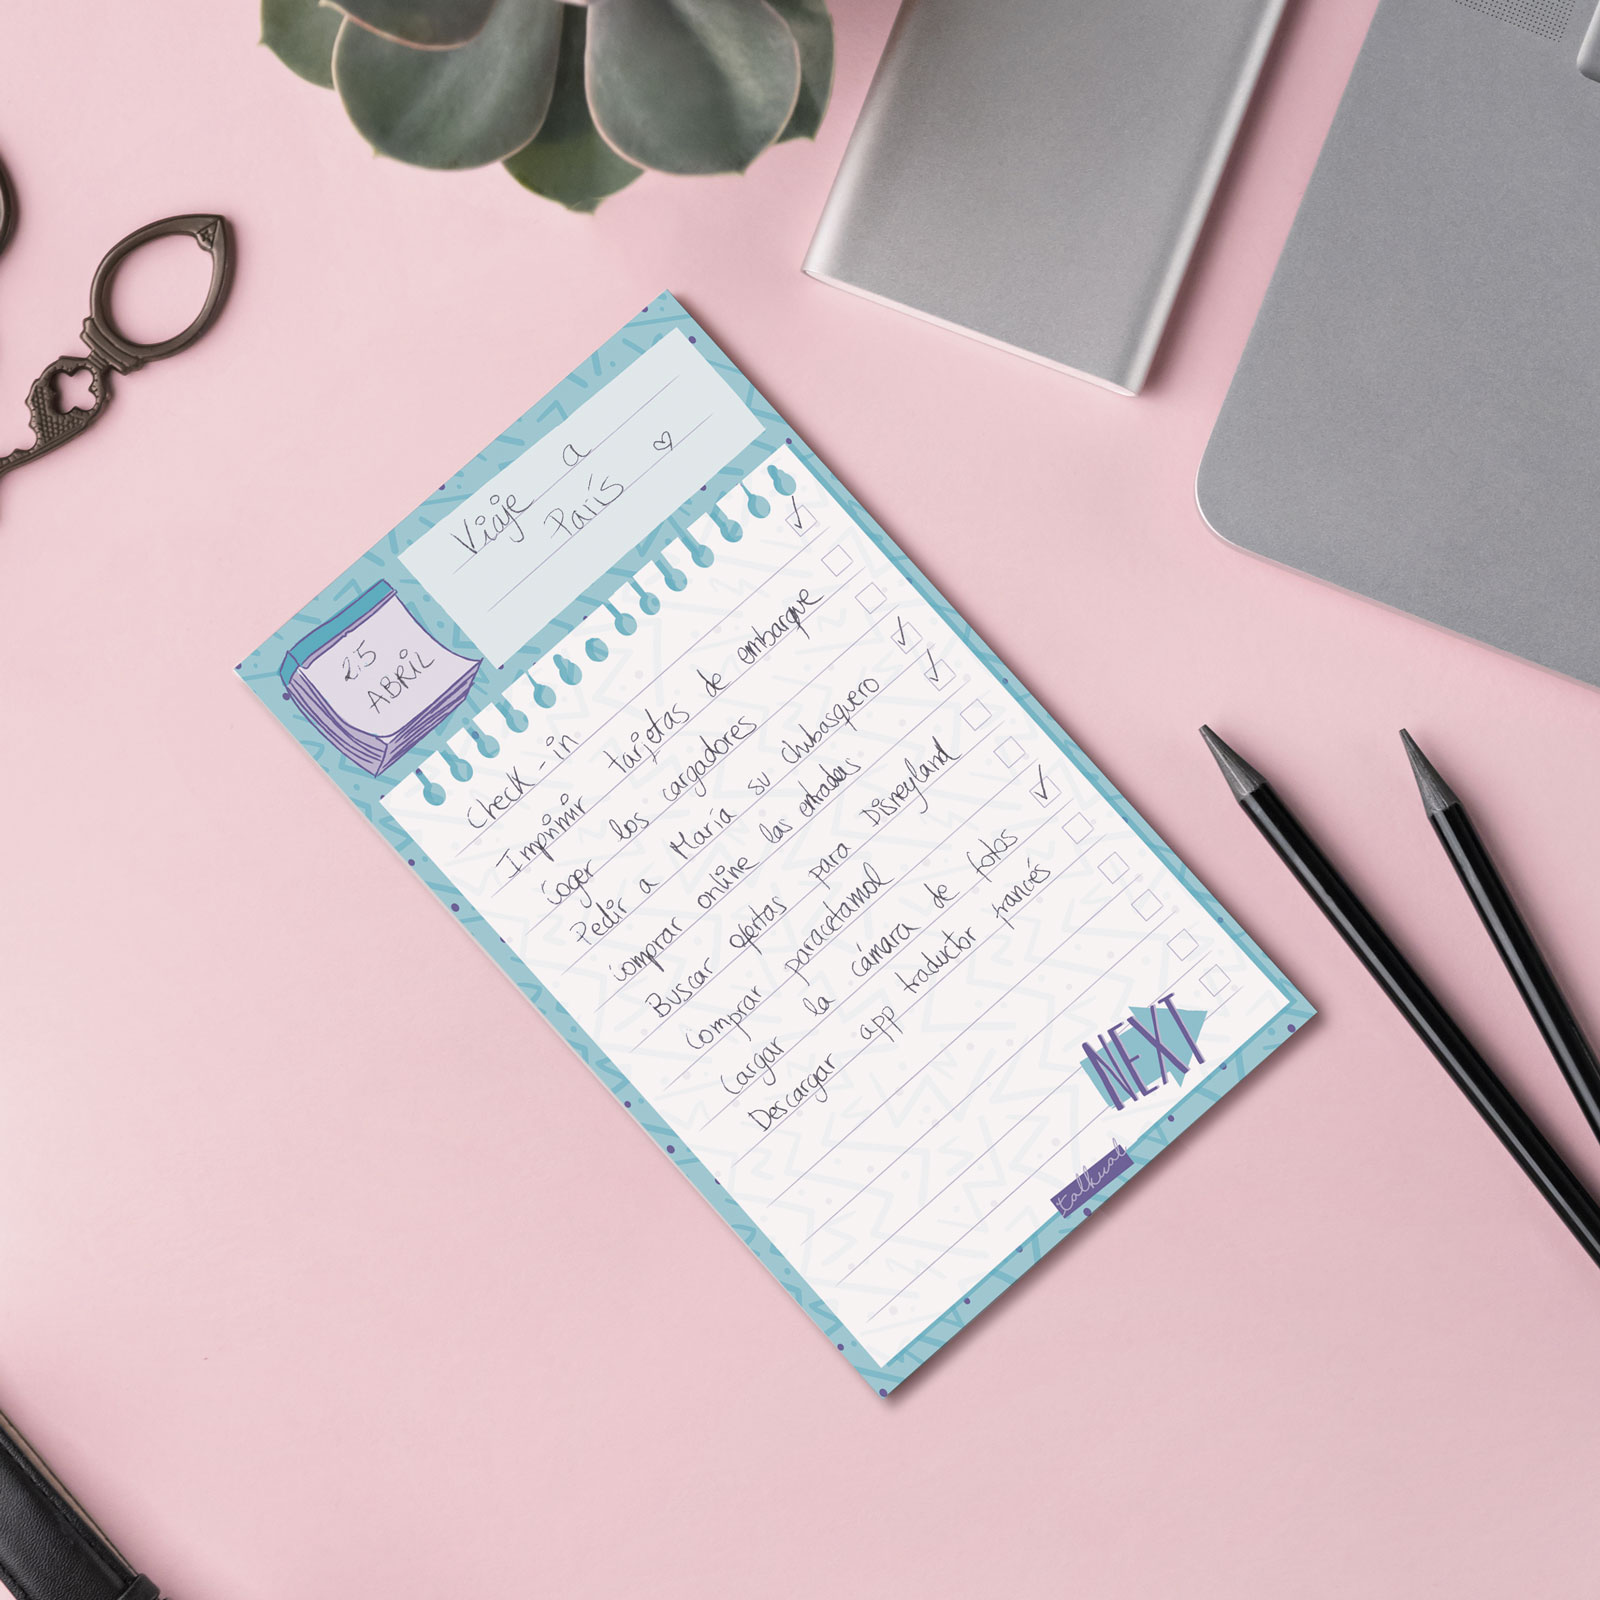 Viaje a
París
25
ABRIL
Check-in
Imprimir tarjetas de embarque
Coger los cargadores
Pedir a María su chubasquero
Comprar online las entradas
Buscar ofertas para Disneyland
Comprar paracetamol
Cargar la cámara de fotos
Descargar app traductor francés
NEXT
talkual